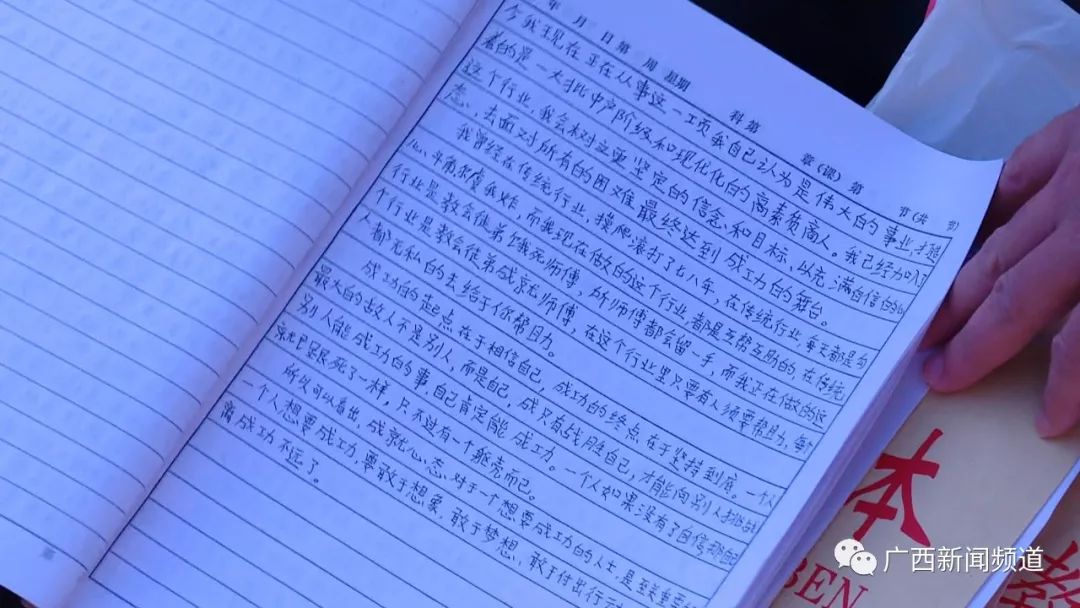 年 月 日 第 周 星期 科 第 章(课) 第 节(共 节
今我现在正在从事这一项我自己认为是伟大的事业,打造
着的是一大批中产阶级和现代化的高素质商人。我已经加入了
这个行业,我会树立更坚定的信念和目标、以充满自信的心
态、去面对所有的困难最终达到成功的舞台。
我曾经在传统行业,摸爬滚打了七八年,在传统行业,每天都是勾
心、斗角尔虞我诈,而我现在做的这个行业,都是互帮互助的,在传统
行业是教会徒弟饿死师傅,所师傅都会留一手,而我正在做的这
个行业是教会徒弟成就师傅,在这个行业里只要有人须要帮助,每个
人都无私的去给于你帮助。
成功的起点在于相信自己,成功的终点在于坚持到底。一个人
最大的敌人不是别人,而是自己,成只有战胜自己,才能向别人挑战
别人能成功的事,自己肯定能成功。一个人如果没有了自信,那自己
就已经死了一样,只不过有一个躯壳而已。
所以可以看出,成就心态对于一个想要成功的人士,是至关重要
一个人想要成功,要敢于想象,敢于梦想,敢于付出行动
离成功不远了。
本
BEN
教
广西新闻频道